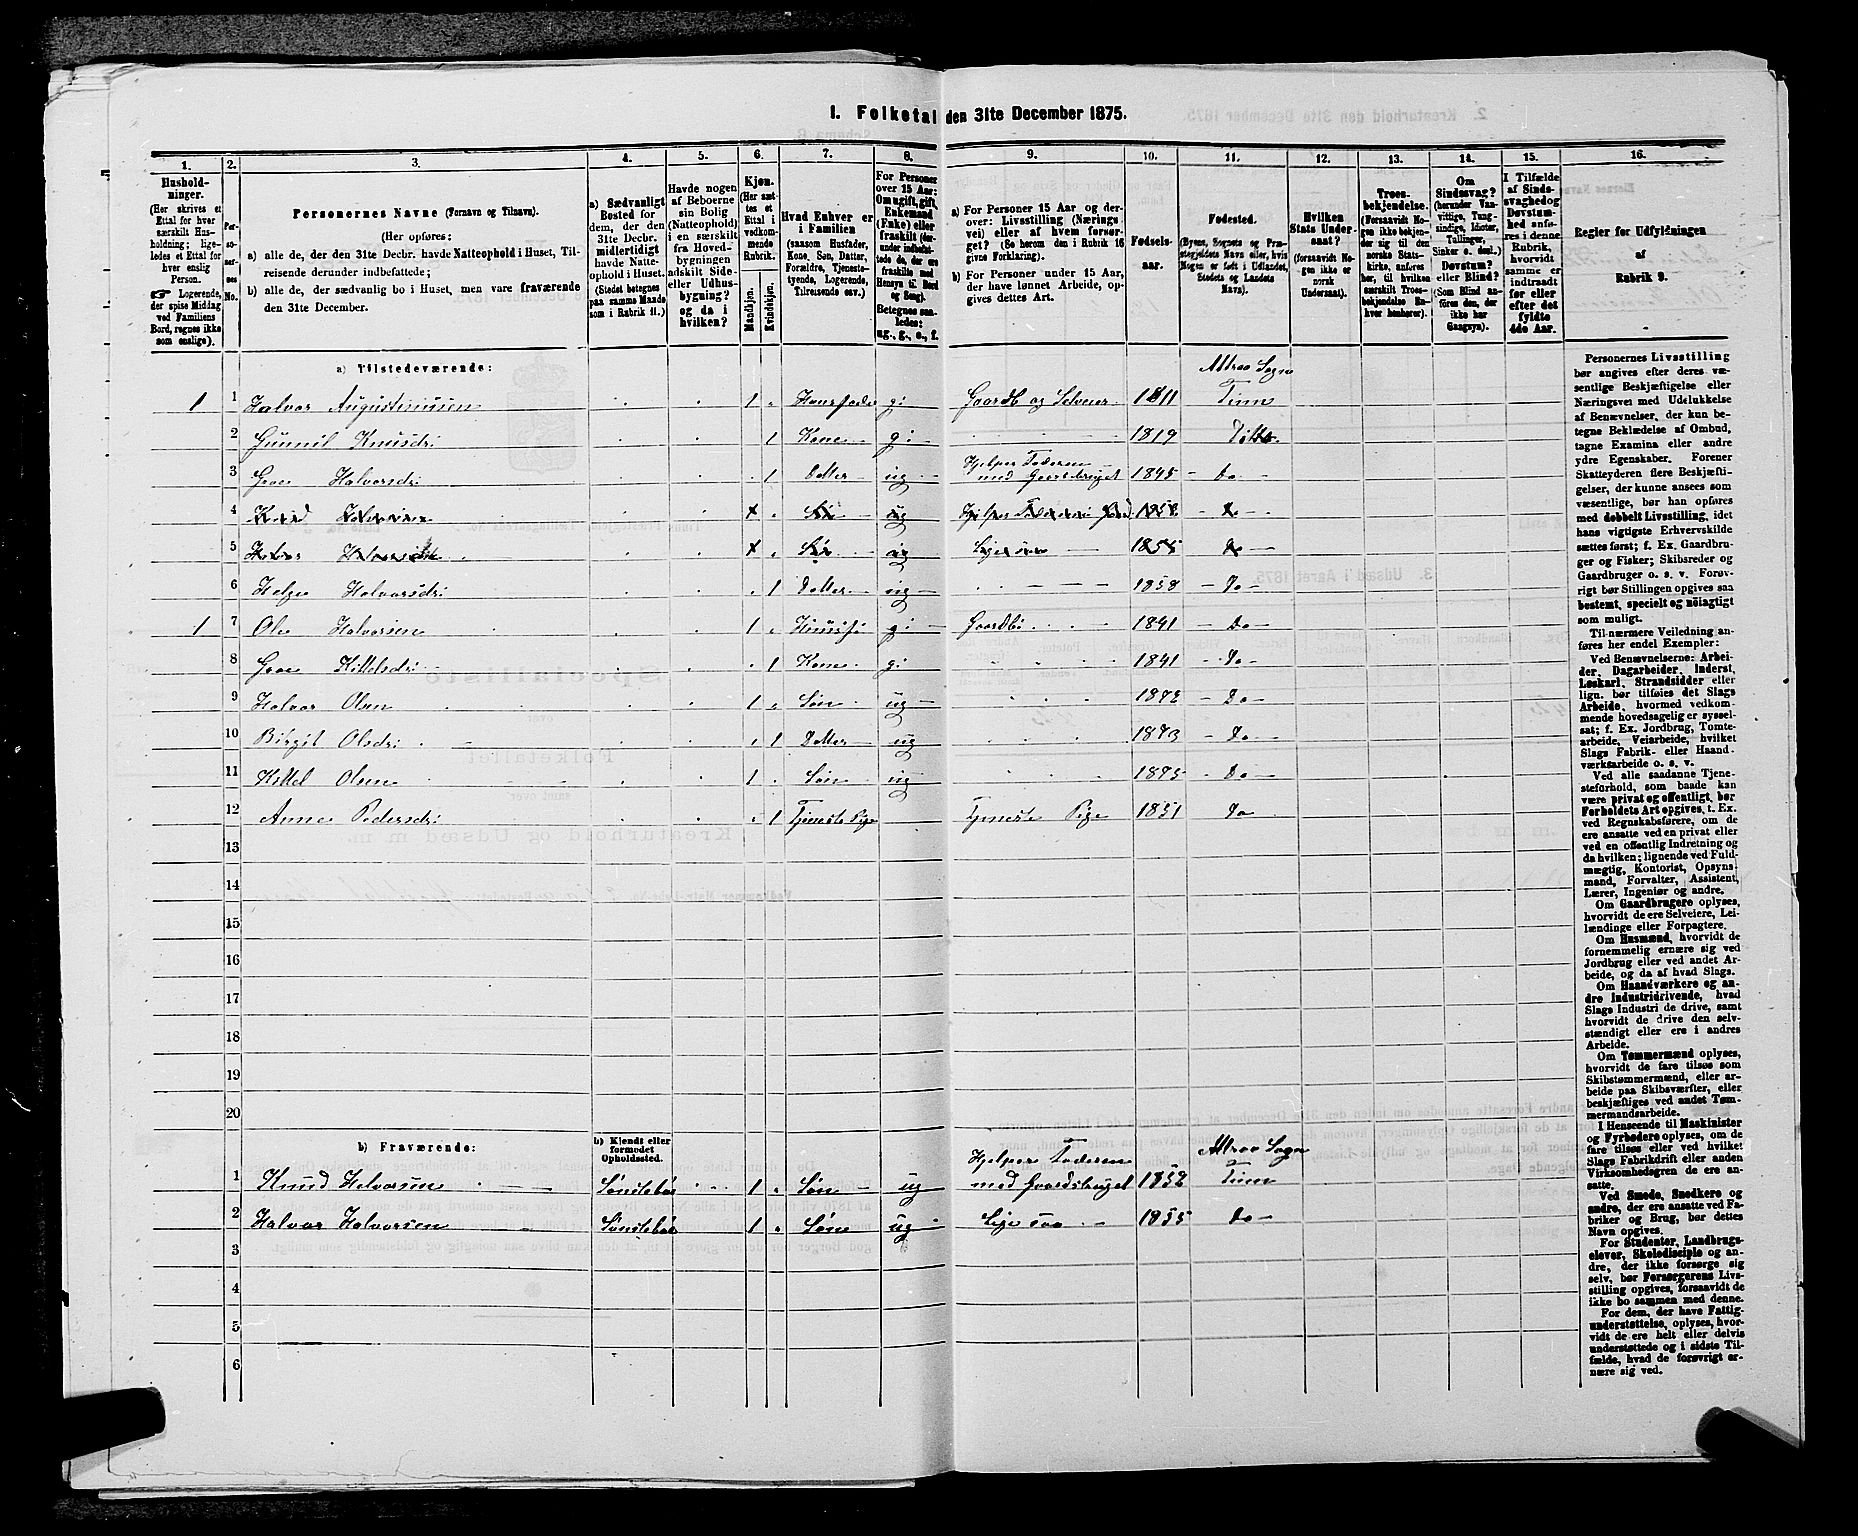 1. Folketal den 31te December 1875.
1. 2. 3. 4. 5. 6. 7. 8. 9. 10. 11. 12. 13. 14. 15. 16.
Hushold-
ninger.
(Her skrives et
Ettal for hver
særskilt Hus-
holdning; lige-
ledes et Ettal for
hver enslig
Person.
☞ Logerende,
der spise Middag
ved Familiens
Bord, regnes ikke
som enslige).
Per-
so-
ner-
nes
No.
Personernes Navne (Fornavn og Tilnavn).
(Her opføres:
a) alle de, der den 31te Decbr. havde Natteophold i Huset, Til-
reisende derunder indbefattede;
b) alle de, der sædvanlig bo i Huset, men vare fraværende
den 31te December.
a) Sædvanligt
Bosted for
dem, der den
31te Decbr.
midlertidigt
havde Natte-
ophold i Huset.
(Stedet betegnes
paa samme Maade
som i Rubrik 11.)
Havde nogen
af Beboerne
sin Bolig
(Natteophold)
i en særskilt
fra Hoved-
bygningen
adskilt Side-
eller Udhus-
bygning?
og da i
hvilken?
Kjøn.
(Her sæt-
tes et
Ettal i
vedkom-
mende
Rubrik.
Mandkjøn.
Kvindekjøn.
Hvad Enhver er
i Familien
(saasom Husfader,
Kone, Søn, Datter,
Forældre, Tjeneste-
tyende, Logerende,
Tilreisende osv.)
For Personer
over 15 Aar:
Om ugift, gift,
Enkemand
(Enke) eller
fraskilt (der-
under indbefat-
tede de, der ere
fraskilte med
Hensyn til Bord
og Seng).
Betegnes saa-
ledes:
ug., g., e., f.
a) For Personer 15 Aar og der-
over: Livsstilling (Nærings-
vei) eller af hvem forsør-
get? (Se herom den i Rubrik 16
givne Forklaring).
b) For Personer under 15 Aar,
der have lønnet Arbeide, op-
gives dettes Art.
Fødsels-
aar.
Fødested.
(Byens, Sognets og Præ-
stegjeldets Navn eller, hvis
Nogen er født i Udlandet,
Stedets og Landets
Navn).
Hvilken
Stats Under-
saat?
(forsaavidt No-
gen ikke er
norsk
Undersaat).
Troes-
bekjendelse.
(Forsaavidt No-
gen ikke bekjen-
der sig til den
norske Stats-
kirke, anføres
her, til hvilken
særskilt Troes-
bekjendelse En-
hver henhører).
Om
Sindssvag?
(herunder Van-
vittige, Tung-
sindige, Idioter,
Tullinger,
Sinker o. desl.)
Døvstum?
eller Blind?
(Som Blind an-
føres den, der
ikke har
Gangsyn).
I Tilfælde
af Sinds-
svaghed og
Døvstum-
hed anfø-
res i denne
Rubrik,
hvorvidt
samme er
indtraadt
før eller
efter det
fyldte
4de Aar.
Regler for Udfyldningen
af
Rubrik 9.
a) Tilstedeværende:
Attraa Sogn
1 1 Halvor Augustinusen 1 Huusfader gi Gaardb og Selveier 1811 Tinn
2 Gunnil Knusdr 1 Kone gi 1819 Ditto
3 Groe Halvorsdr 1 Datter ug Hjelper Faderen med Gaardsbruget 1845 Do
4 Knud Halvorsen x Søn ug Hjelper Faderen 1852 Do
5 Halvor Halvorsen x Søn ug Lige saa 1855 Do
6 Helge Halvorsdr 1 Datter ug 1858 Do
1 7 Ole Halvorsen 1 Huusf gi Gaardb 1841 Do
8 Groe Kittelsdr 1 Kone gi 1841 Do
9 Halvor Olsen 1 Søn ug 1872 Do
10 Birgit Olsdr 1 Datter ug 1873 Do
11 Kittel Olsen 1 Søn ug 1875 Do
12 Anne Pedersdr 1 Tjeneste Pige Tjeneste Pige 1851 Do
13
14
15
16
17
18
19
20
b) Fraværende:
b) Kjendt eller
formodet
Opholdssted.
Attraa Sogn
1 Knud Halvorsen Sønstebø 1 Søn ug Hjelper Faderen med Gaardsbruget 1852 Tinn
2 Halvor Halvorsen Sønstebø 1 Søn ug Lige saa 1855 Do
3
4
5
6
Personernes Livsstilling
bør angives efter deres væ-
sentlige Beskjæftigelse eller
Næringsvei med Udelukkelse
af Benævnelser, der kun be-
tegne Beklædelse af Ombud,
tagne Examina eller andre
ydre Egenskaber. Forener
Skatteyderen flere Beskjæfti-
gelser, der kunne ansees som
væsentlige, bør han opføres
med dobbelt Livsstilling, idet
hans vigtigste Erhvervskilde
sættes først; f. Ex. Gaardbru-
ger og Fisker; Skibsreder og
Gaardbruger o. s. v. Forøv-
rigt bør Stillingen opgives saa
bestemt, specielt og nöiagtigt
som muligt.
Til nærmere Veiledning an-
føres her endel Exempler:
Ved Benævnelserne: Arbei-
der, Dagarbeider, Inderst,
Løskarl, Strandsidder eller
lign. bør tilføies det Slags
Arbeide, hvormed vedkom-
mende hovedsagelig er syssel-
sat; f. Ex. Jordbrug, Tomte-
arbeide, Veiarbeide, hvilket
Slags Fabrik- eller Haand-
værksarbeide o. s. v.
Ved alle saadanne Tjene-
steforhold, som baade kan
være privat og offentligt, bør
Forholdets Art opgives, t. Ex.
ved Regnskabsførere, om de
ere ansatte ved en privat eller
ved en offentlig Indretning og
da hvilken; lignende ved Fuld-
mægtig, Kontorist, Opsyns-
mand, Forvalter, Assistent,
Lærer, Ingeniør og andre.
Om Gaardbrugere oplyses,
hvorvidt de ere Selveiere, Lei-
lændinge eller Forpagtere.
Om Husmænd, hvorvidt de
fornemmelig ernære sig ved
Jordbrug eller ved andet Ar-
beide, og da af hvad Slags.
Om Haandværkere og an-
dre Industridrivende, hvad
Slags Industri de drive, samt
hvorvidt de drive den selv-
stændigt eller ere i andres
Arbeide.
Om Tømmermænd oplyses,
hvorvidt de fare tilsøs som
Skibstømmermænd, eller ar-
beide paa Skibsværfter, eller
beskjæftiges ved andet Tøm-
mermandsarbeide.
I Henseende til Maskinister
og Fyrbødere oplyses, om de
fare tilsøs eller ved hvilket
Slags Fabrikdrift eller anden
Virksomhedsgren de ere an-
satte.
Ved Smede, Snedkere og
andre, der ere ansatte ved Fa-
briker og Brug, bør dettes
Navn opgives.
For Studenter, Landbrugs-
elever, Skoledisciple og an-
dre, der ikke forsørge sig
selv, bør Forsørgerens Livs-
stilling opgives, forsaavidt de
ikke bo sammen med denne.
For dem, der have Fattig-
understøttelse, oplyses, hvor-
vidt de ere helt eller delvis
understøttede og i sidste Til-
fælde, hvad de forøvrigt er-
nære sig ved.